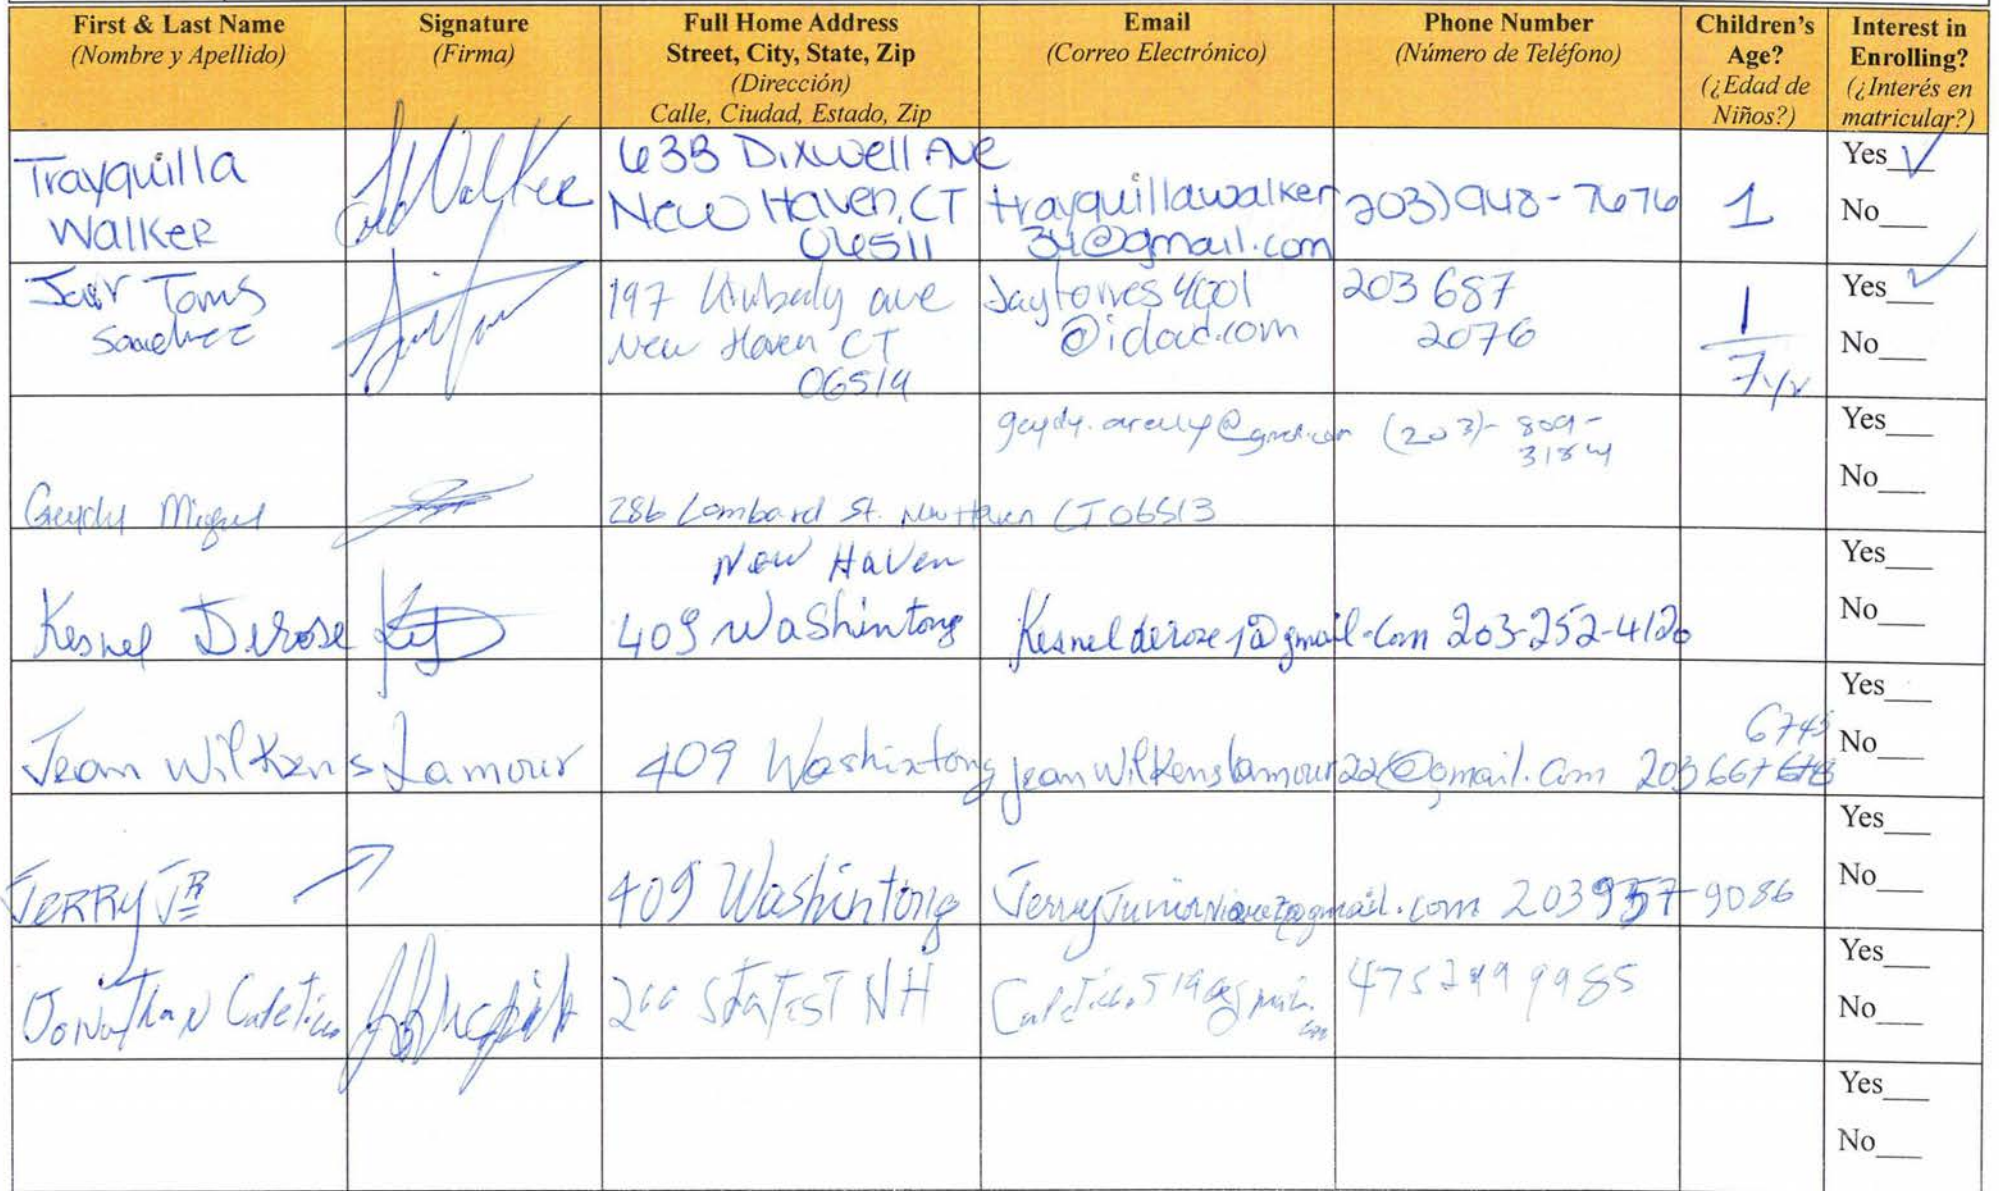 First & Last Name
(Nombre y Apellido)
Signature
(Firma)
Full Home Address
Street, City, State, Zip
(Dirección)
Calle, Ciudad, Estado, Zip
Email
(Correo Electrónico)
Phone Number
(Número de Teléfono)
Children's
Age?
(¿Edad de
Niños?)
Interest in
Enrolling?
(¿Interés en
matricular?)
Trayquilla
Walker
Walker
633 Dixwell Ave
New Haven, CT
06511
trayquillawalker
34@gmail.com
203) 948-7676
1
Yes ✓
No___
Sanchez
197 Kimberly ave
New Haven CT
06519
Jaytorres4001
@icloud.com
203 687
2076
1
7yr
Yes ✓
No___
Geydy Miguel
286 Lombard St. New Haven CT 06513
(203)-809-
3184
Yes___
No___
Kesnel Derose
New Haven
409 Washintong
Kesnelderose1@gmail.com
203-252-4120
Yes___
No___
Jean Wilkens Lamour
409 Washintong
jeanwilkenslamour22@gmail.com
6745
203 667
Yes___
No___
JERRY JR
409 Washintong
203 957-9086
Yes___
No___
Jonathan
State ST NH
475 299 9985
Yes___
No___
Yes___
No___